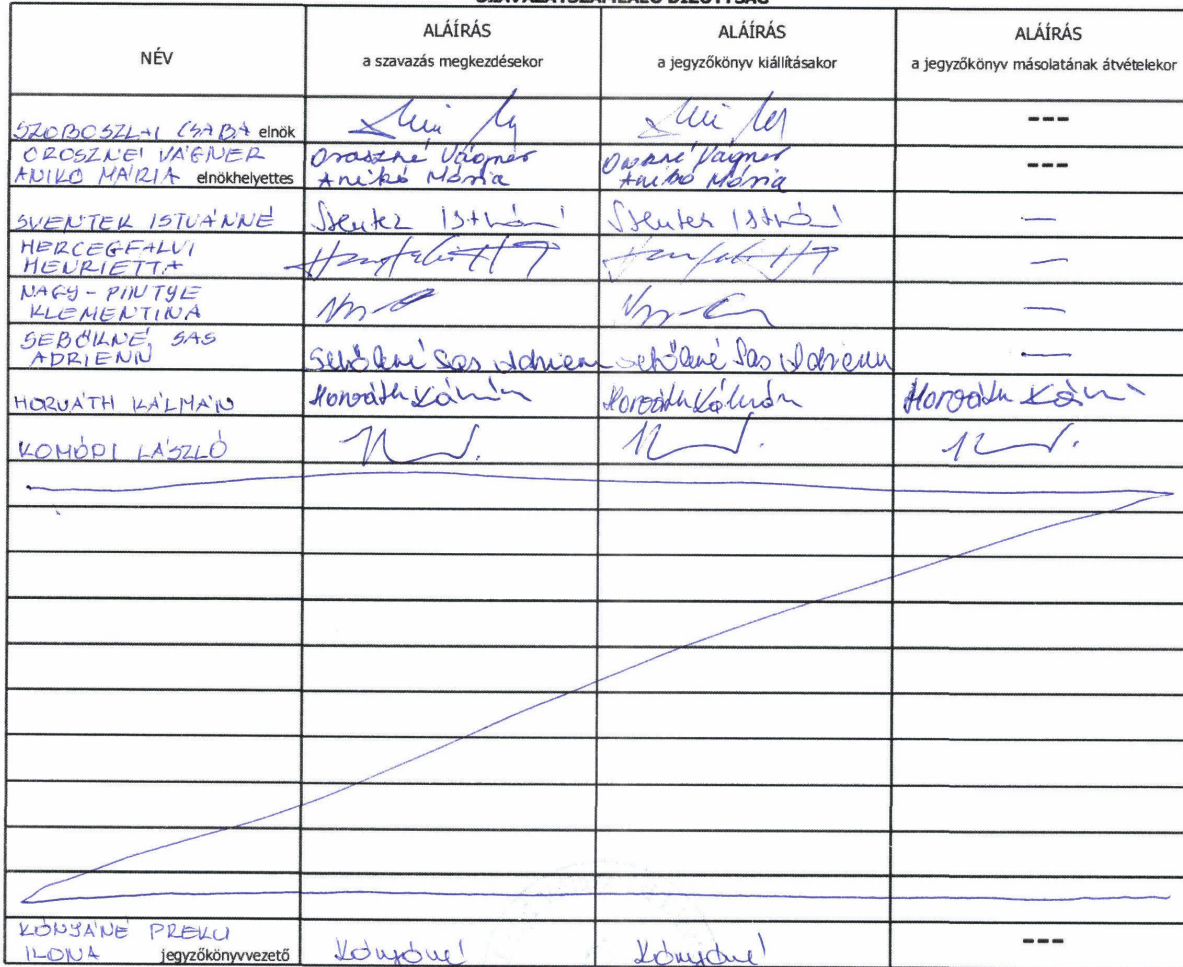 SZAVAZATSZÁMLÁLÓ BIZOTTSÁG
NÉV
ALÁÍRÁS
a szavazás megkezdésekor
ALÁÍRÁS
a jegyzőkönyv kiállításakor
ALÁÍRÁS
a jegyzőkönyv másolatának átvételekor
SZOBOSZLAI CSABA elnök
---
OROSZNÉ VÁGNER
ANIKÓ MÁRIA elnökhelyettes
Oroszné Vágner
Anikó Mária
Oroszné Vágner
Anikó Mária
---
SVENTEK ISTVÁNNÉ
—
HERCEGFALVI
HENRIETTA
—
NAGY-PINTYE
KLEMENTINA
—
SEBŐKNÉ SAS
ADRIENN
Sebőkné Sas Adrienn
Sebőkné Sas Adrienn
—
HORVÁTH KÁLMÁN
Horváth Kálmán
Horváth Kálmán
Horváth Kálmán
KOMÓDI LÁSZLÓ
KÓNYÁNÉ PREKU
ILONA jegyzőkönyvvezető
Kónyáné
Kónyáné
---